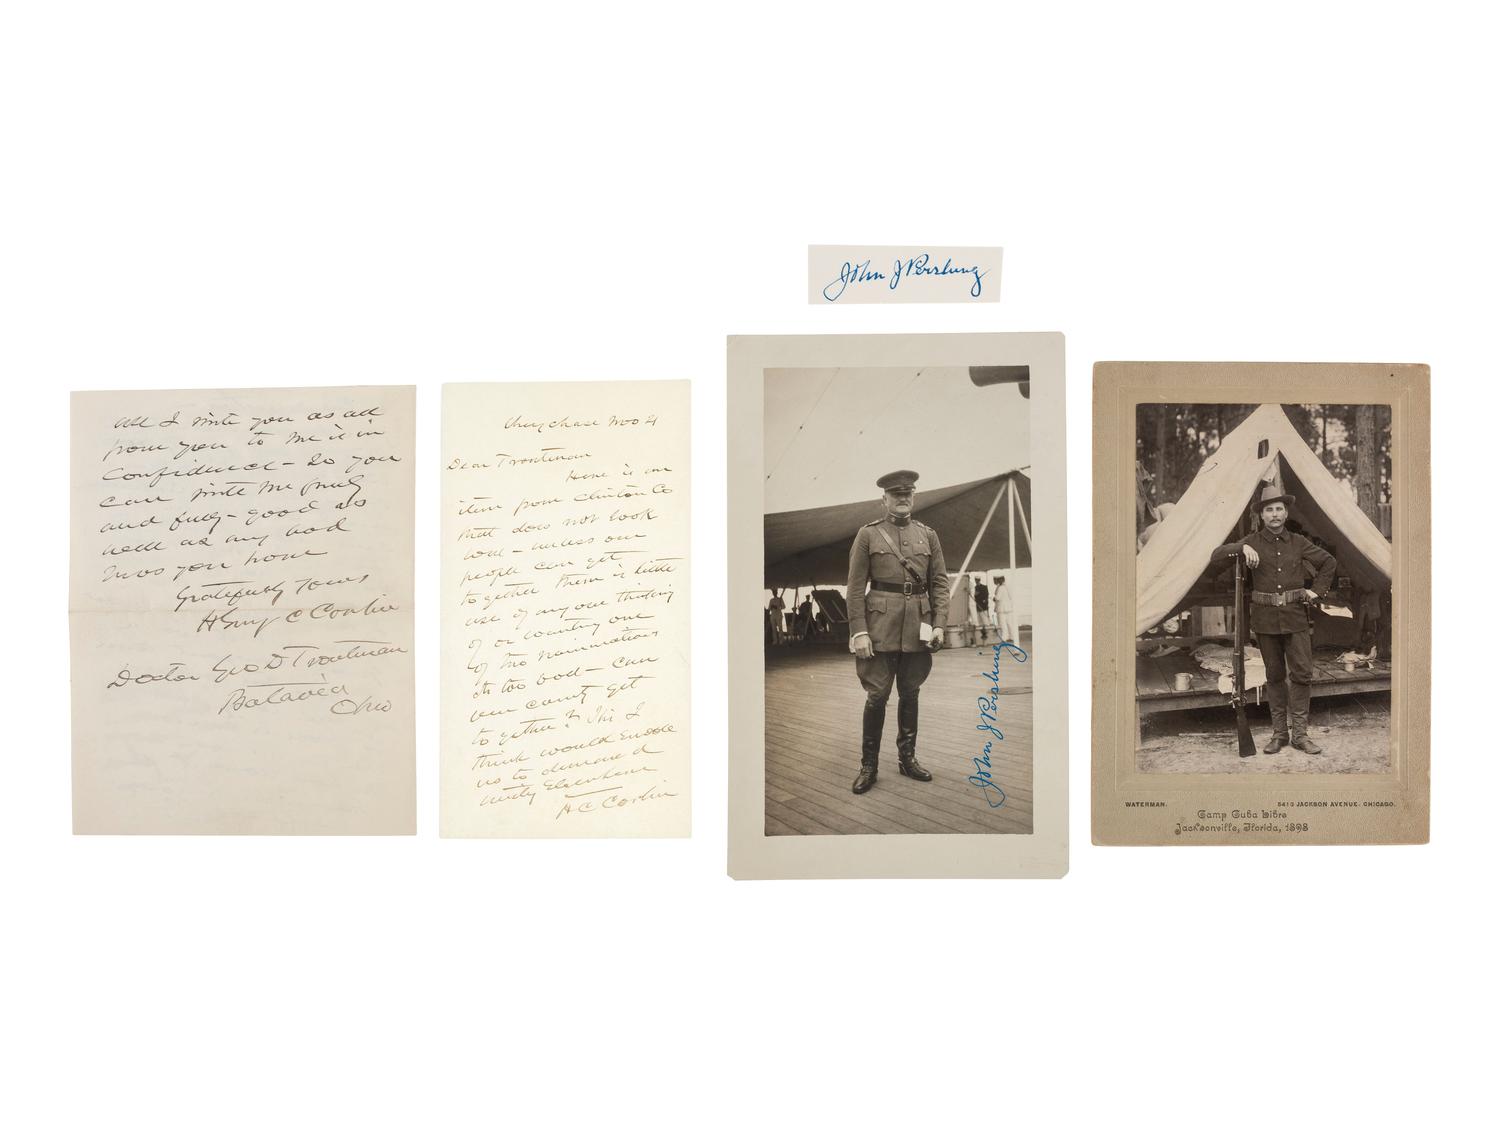 all I write you as all
from you to me is in
Confidence - So you
can write me freely
and fully - good as
well as any bad
news you have
Gratefully Yours
Henry C Corbin
Doctor Geo D Troutman
Batavia
Ohio
Chevychase Nov 21
Dear Troutman
Here is an
item from Clinton Co
that does not look
well - unless our
people can get
together there is little
use of anyone thinking
of or wanting one
of the nominations
its too bad - Can
your county get
together? This I
think would enable
us to demand
unity elsewhere
H C Corbin
John J Pershing
John J Pershing
WATERMAN. 5413 JACKSON AVENUE. CHICAGO.
Camp Cuba Libre
Jacksonville, Florida, 1898